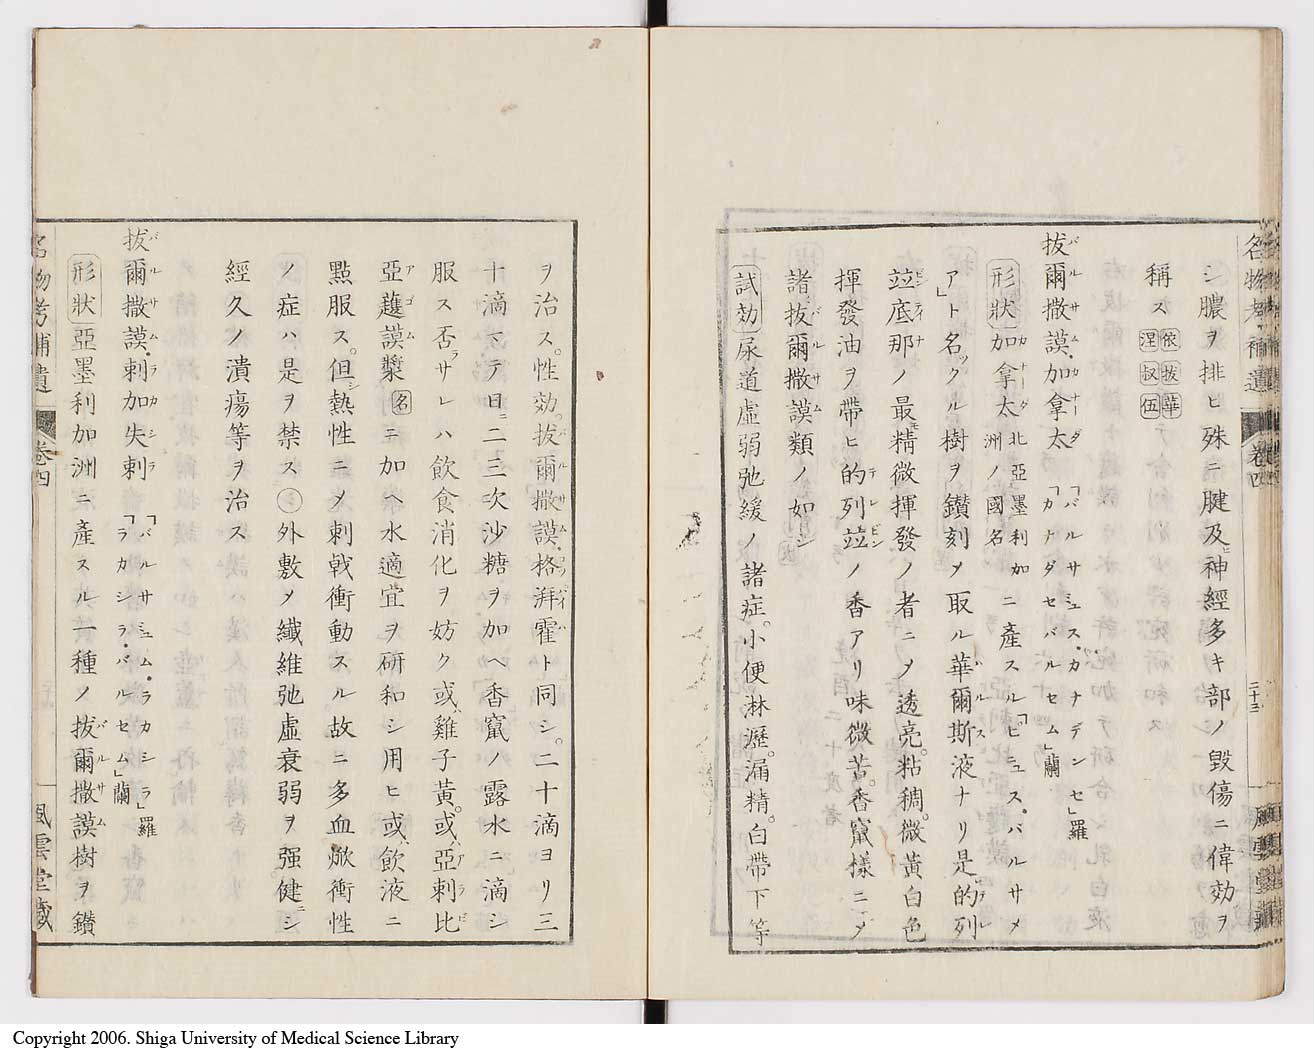 名物考補遺 卷四 二十三 風雲堂藏
シ膿ヲ排ヒ殊ニ腱及神經多キ部ノ毀傷ニ偉効ヲ
稱ス 依拔華 涅叔伍
拔爾撒謨・加拿太 「バルサミュス・カナデンセ」羅 「カナダセバルセム」蘭
形狀 加拿太 北亞墨利加洲ノ國名 ニ產スル「ビュス・バルサメ
ア」ト名ックル樹ヲ鑽刻メ取ル華爾斯液ナリ是的列
竝底那ノ最精微揮發ノ者ニメ透亮。粘稠。微黃白色
揮發油ヲ帶ヒ的列竝ノ香アリ味微苦。香竄樣ニメ
諸拔爾撒謨類ノ如シ
試効 尿道虛弱弛緩ノ諸症。小便淋瀝。漏精。白帶下等
ヲ治ス。性効。拔爾撒謨・格湃霍ト同シ。二十滴ヨリ三
十滴マテ日ニ二三次沙糖ヲ加ヘ香竄ノ露水ニ滴シ
服ス否ラサレハ飲食消化ヲ妨ク或雞子黃。或亞剌比
亞護謨漿 名 ニ加ヘ水適宜ヲ研和シ用ヒ或飲液ニ
點服ス。但シ熱性ニメ刺戟衝動スル故ニ多血焮衝性
ノ症ハ是ヲ禁ス 外敷メ纖維弛虛衰弱ヲ强健ニシ
經久ノ潰瘍等ヲ治ス
拔爾撒謨・剌加失剌 「バルサミュム・ラカシラ」羅 「ラカシラ・バルセム」蘭
形狀 亞墨利加洲ニ產スル一種ノ拔爾撒謨樹ヲ鑽
名物考補遺 卷四 風雲堂藏
Copyright 2006. Shiga University of Medical Science Library